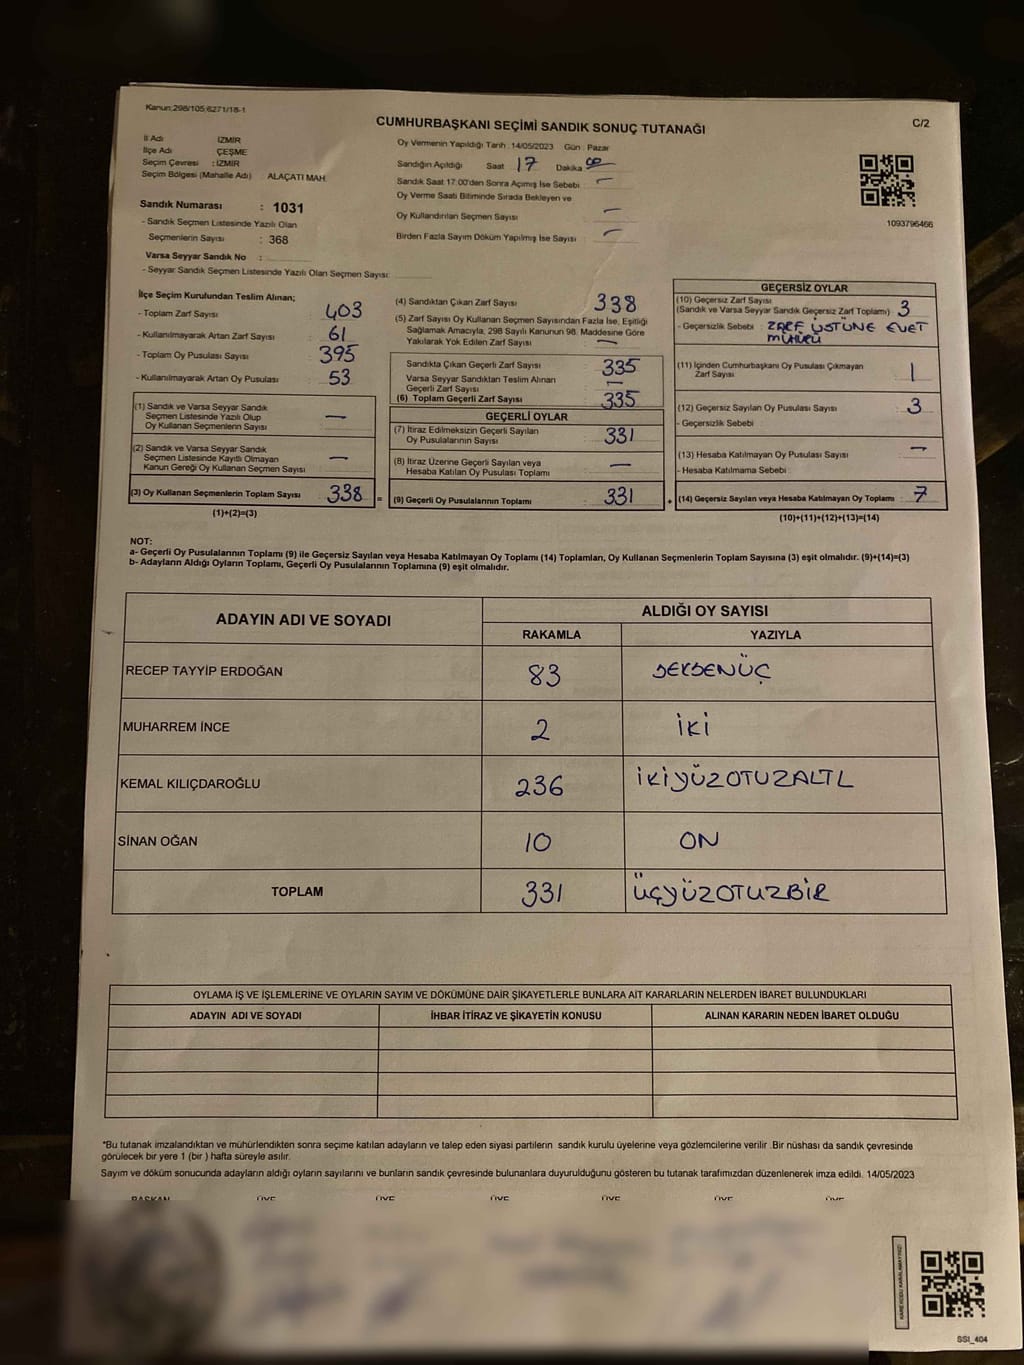 Kanun:298/105;6271/18-1
CUMHURBAŞKANI SEÇİMİ SANDIK SONUÇ TUTANAĞI
C/2
İl Adı İZMİR
İlçe Adı ÇEŞME
Seçim Çevresi : İZMİR
Seçim Bölgesi (Mahalle Adı) ALAÇATI MAH.
Sandık Numarası : 1031
- Sandık Seçmen Listesinde Yazılı Olan
Seçmenlerin Sayısı : 368
Varsa Seyyar Sandık No :
- Seyyar Sandık Seçmen Listesinde Yazılı Olan Seçmen Sayısı:
Oy Vermenin Yapıldığı Tarih : 14/05/2023 Gün : Pazar
Sandığın Açıldığı Saat 17 Dakika 00
Sandık Saat 17:00'den Sonra Açımış İse Sebebi : —
Oy Verme Saati Bitiminde Sırada Bekleyen ve
Oy Kullandırılan Seçmen Sayısı —
Birden Fazla Sayım Döküm Yapılmış İse Sayısı : —
1093796466
İlçe Seçim Kurulundan Teslim Alınan;
- Toplam Zarf Sayısı : 403
- Kullanılmayarak Artan Zarf Sayısı : 61
- Toplam Oy Pusulası Sayısı : 395
- Kullanılmayarak Artan Oy Pusulası : 53
(1) Sandık ve Varsa Seyyar Sandık
Seçmen Listesinde Yazılı Olup
Oy Kullanan Seçmenlerin Sayısı : —
(2) Sandık ve Varsa Seyyar Sandık
Seçmen Listesinde Kayıtlı Olmayan
Kanun Gereği Oy Kullanan Seçmen Sayısı : —
(3) Oy Kullanan Seçmenlerin Toplam Sayısı : 338 =
(1)+(2)=(3)
(4) Sandıktan Çıkan Zarf Sayısı : 338
(5) Zarf Sayısı Oy Kullanan Seçmen Sayısından Fazla İse, Eşitliği
Sağlamak Amacıyla, 298 Sayılı Kanunun 98. Maddesine Göre
Yakılarak Yok Edilen Zarf Sayısı : —
Sandıkta Çıkan Geçerli Zarf Sayısı : 335
Varsa Seyyar Sandıktan Teslim Alınan
Geçerli Zarf Sayısı : —
(6) Toplam Geçerli Zarf Sayısı : 335
GEÇERLİ OYLAR
(7) İtiraz Edilmeksizin Geçerli Sayılan
Oy Pusulalarının Sayısı : 331
(8) İtiraz Üzerine Geçerli Sayılan veya
Hesaba Katılan Oy Pusulası Toplamı : —
(9) Geçerli Oy Pusulalarının Toplamı : 331 +
GEÇERSİZ OYLAR
(10) Geçersiz Zarf Sayısı
(Sandık ve Varsa Seyyar Sandık Geçersiz Zarf Toplamı) : 3
- Geçersizlik Sebebi : ZARF ÜSTÜNE EVET
MÜHÜRÜ
(11) İçinden Cumhurbaşkanı Oy Pusulası Çıkmayan
Zarf Sayısı : 1
(12) Geçersiz Sayılan Oy Pusulası Sayısı : 3
- Geçersizlik Sebebi :
(13) Hesaba Katılmayan Oy Pusulası Sayısı : —
- Hesaba Katılmama Sebebi :
(14) Geçersiz Sayılan veya Hesaba Katılmayan Oy Toplamı : 7
(10)+(11)+(12)+(13)=(14)
NOT:
a- Geçerli Oy Pusulalarının Toplamı (9) ile Geçersiz Sayılan veya Hesaba Katılmayan Oy Toplamı (14) Toplamları, Oy Kullanan Seçmenlerin Toplam Sayısına (3) eşit olmalıdır. (9)+(14)=(3)
b- Adayların Aldığı Oyların Toplamı, Geçerli Oy Pusulalarının Toplamına (9) eşit olmalıdır.
ADAYIN ADI VE SOYADI ALDIĞI OY SAYISI
RAKAMLA YAZIYLA
RECEP TAYYİP ERDOĞAN 83 SEKSENÜÇ
MUHARREM İNCE 2 İKİ
KEMAL KILIÇDAROĞLU 236 İKİYÜZOTUZALTI
SİNAN OĞAN 10 ON
TOPLAM 331 ÜÇYÜZOTUZBİR
OYLAMA İŞ VE İŞLEMLERİNE VE OYLARIN SAYIM VE DÖKÜMÜNE DAİR ŞİKAYETLERLE BUNLARA AİT KARARLARIN NELERDEN İBARET BULUNDUKLARI
ADAYIN ADI VE SOYADI İHBAR İTİRAZ VE ŞİKAYETİN KONUSU ALINAN KARARIN NEDEN İBARET OLDUĞU
*Bu tutanak imzalandıktan ve mühürlendikten sonra seçime katılan adayların ve talep eden siyasi partilerin sandık kurulu üyelerine veya gözlemcilerine verilir. Bir nüshası da sandık çevresinde
görülecek bir yere 1 (bir ) hafta süreyle asılır.
Sayım ve döküm sonucunda adayların aldığı oyların sayılarını ve bunların sandık çevresinde bulunanlara duyurulduğunu gösteren bu tutanak tarafımızdan düzenlenerek imza edildi. 14/05/2023
BAŞKAN ÜYE ÜYE ÜYE ÜYE ÜYE ÜYE
KARE KODU KARALAMAYINIZ!
SSI_404